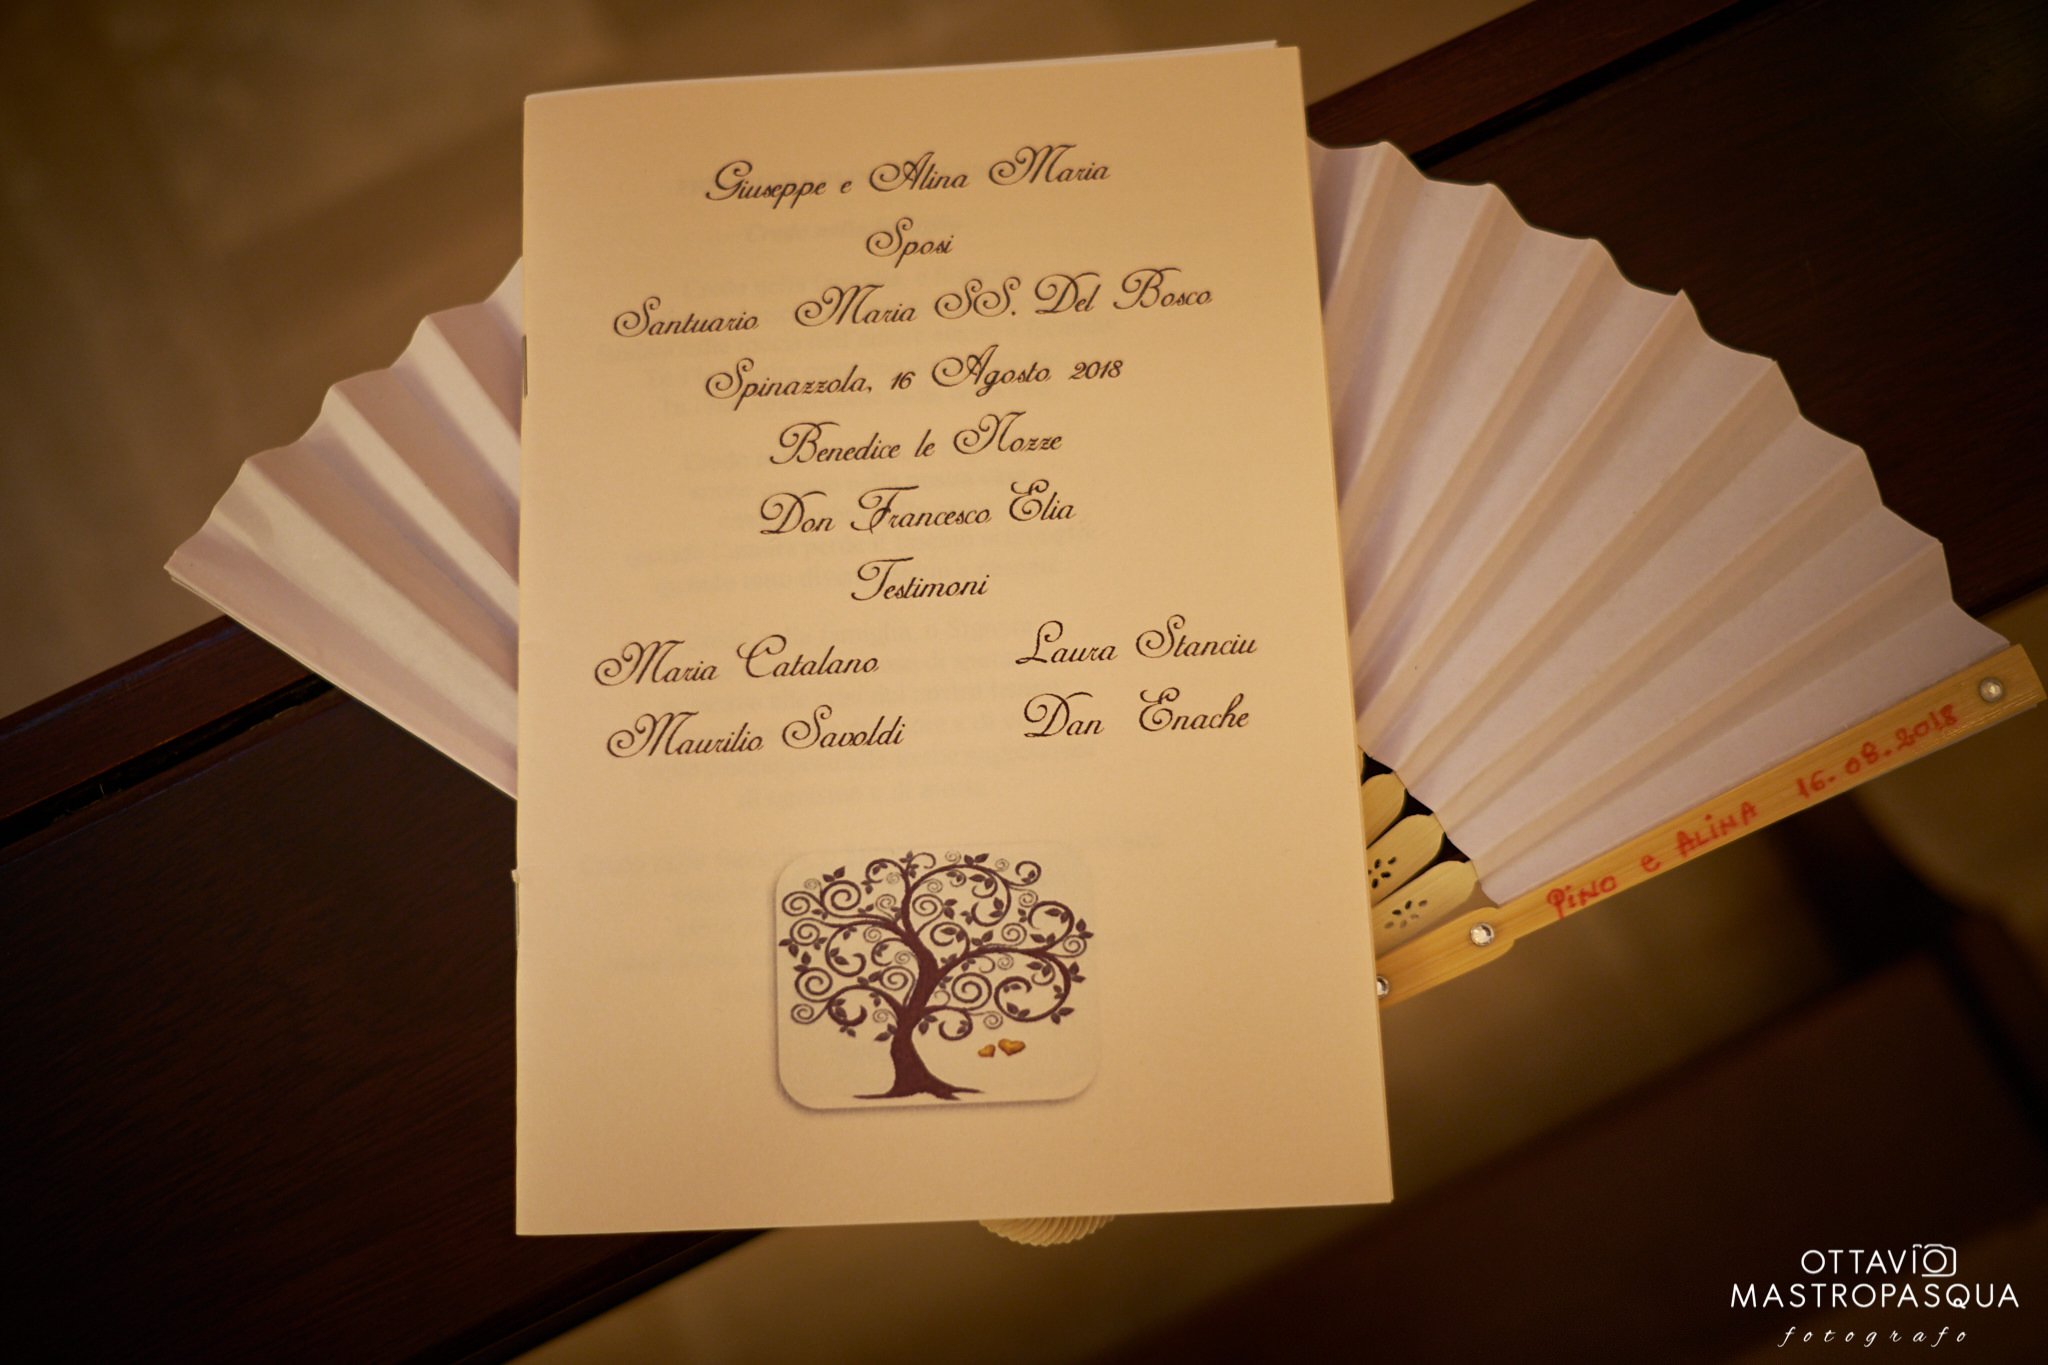 Giuseppe e Alina Maria
Sposi
Santuario Maria SS. Del Bosco
Spinazzola, 16 Agosto 2018
Benedice le Nozze
Don Francesco Elia
Testimoni
Maria Catalano Laura Stanciu
Maurilio Savoldi Dan Enache
Pino e ALiNA 16-08-2018
OTTAVIO
MASTROPASQUA
fotografo